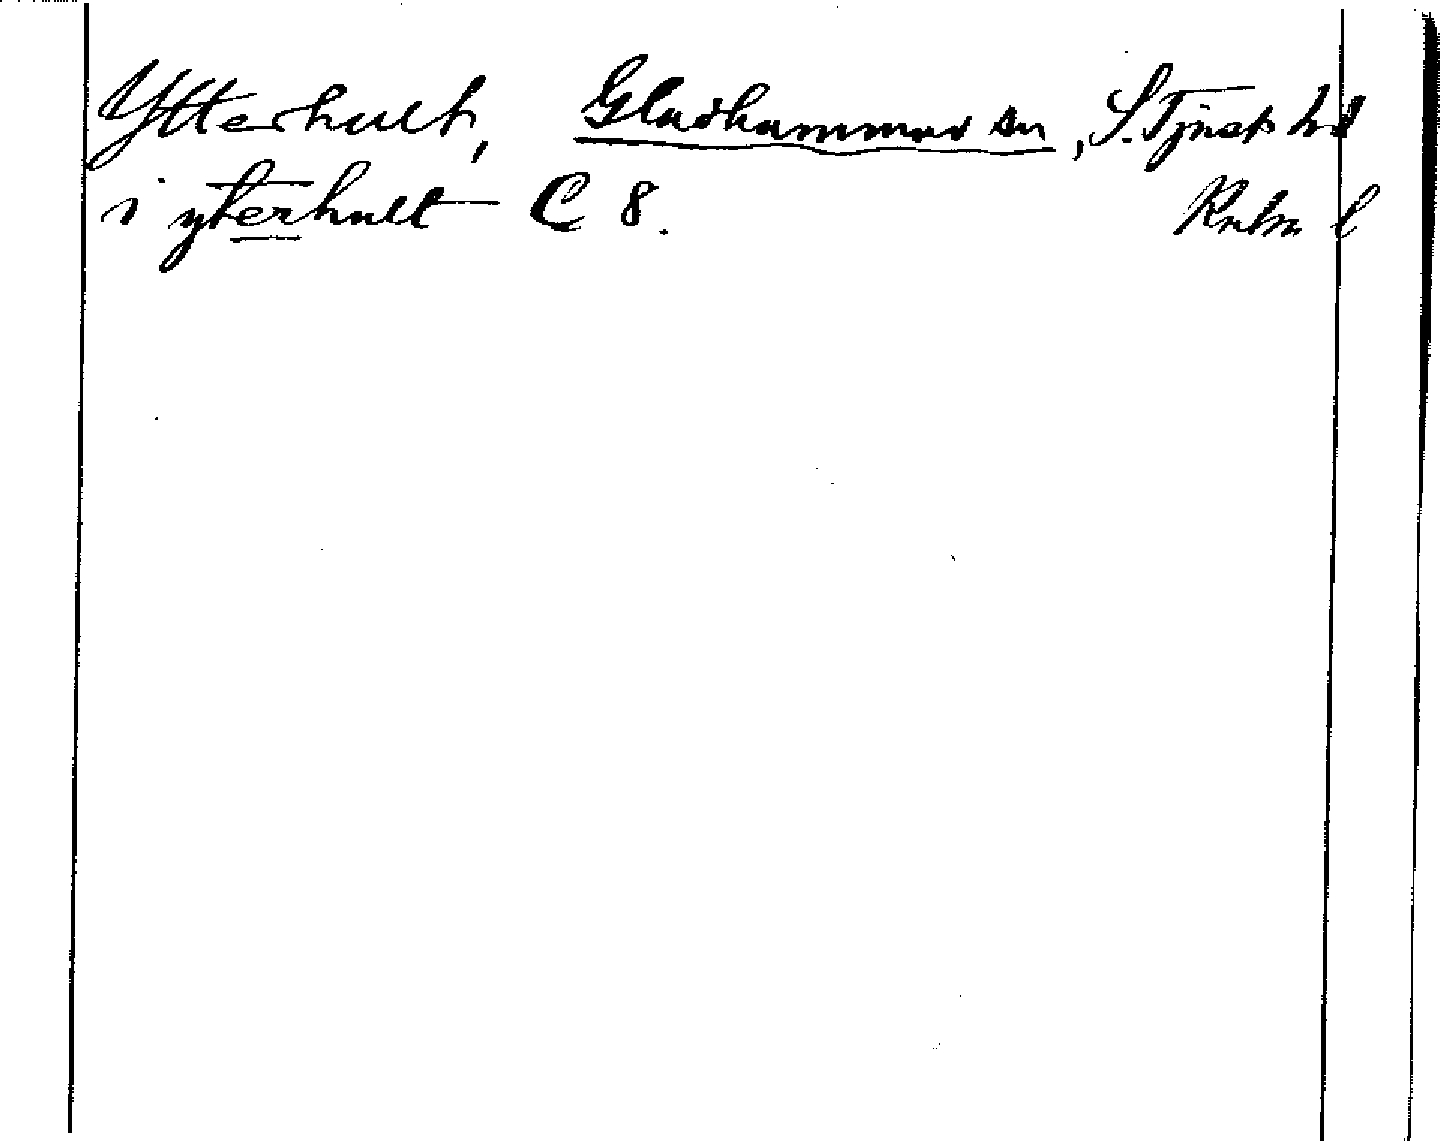 Ytterhult, Gladhammar sn, S. Tjust hd
i yterhult C 8. Kalm l